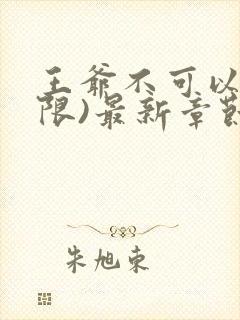 王爷不可以
限)最新章节
朱旭东